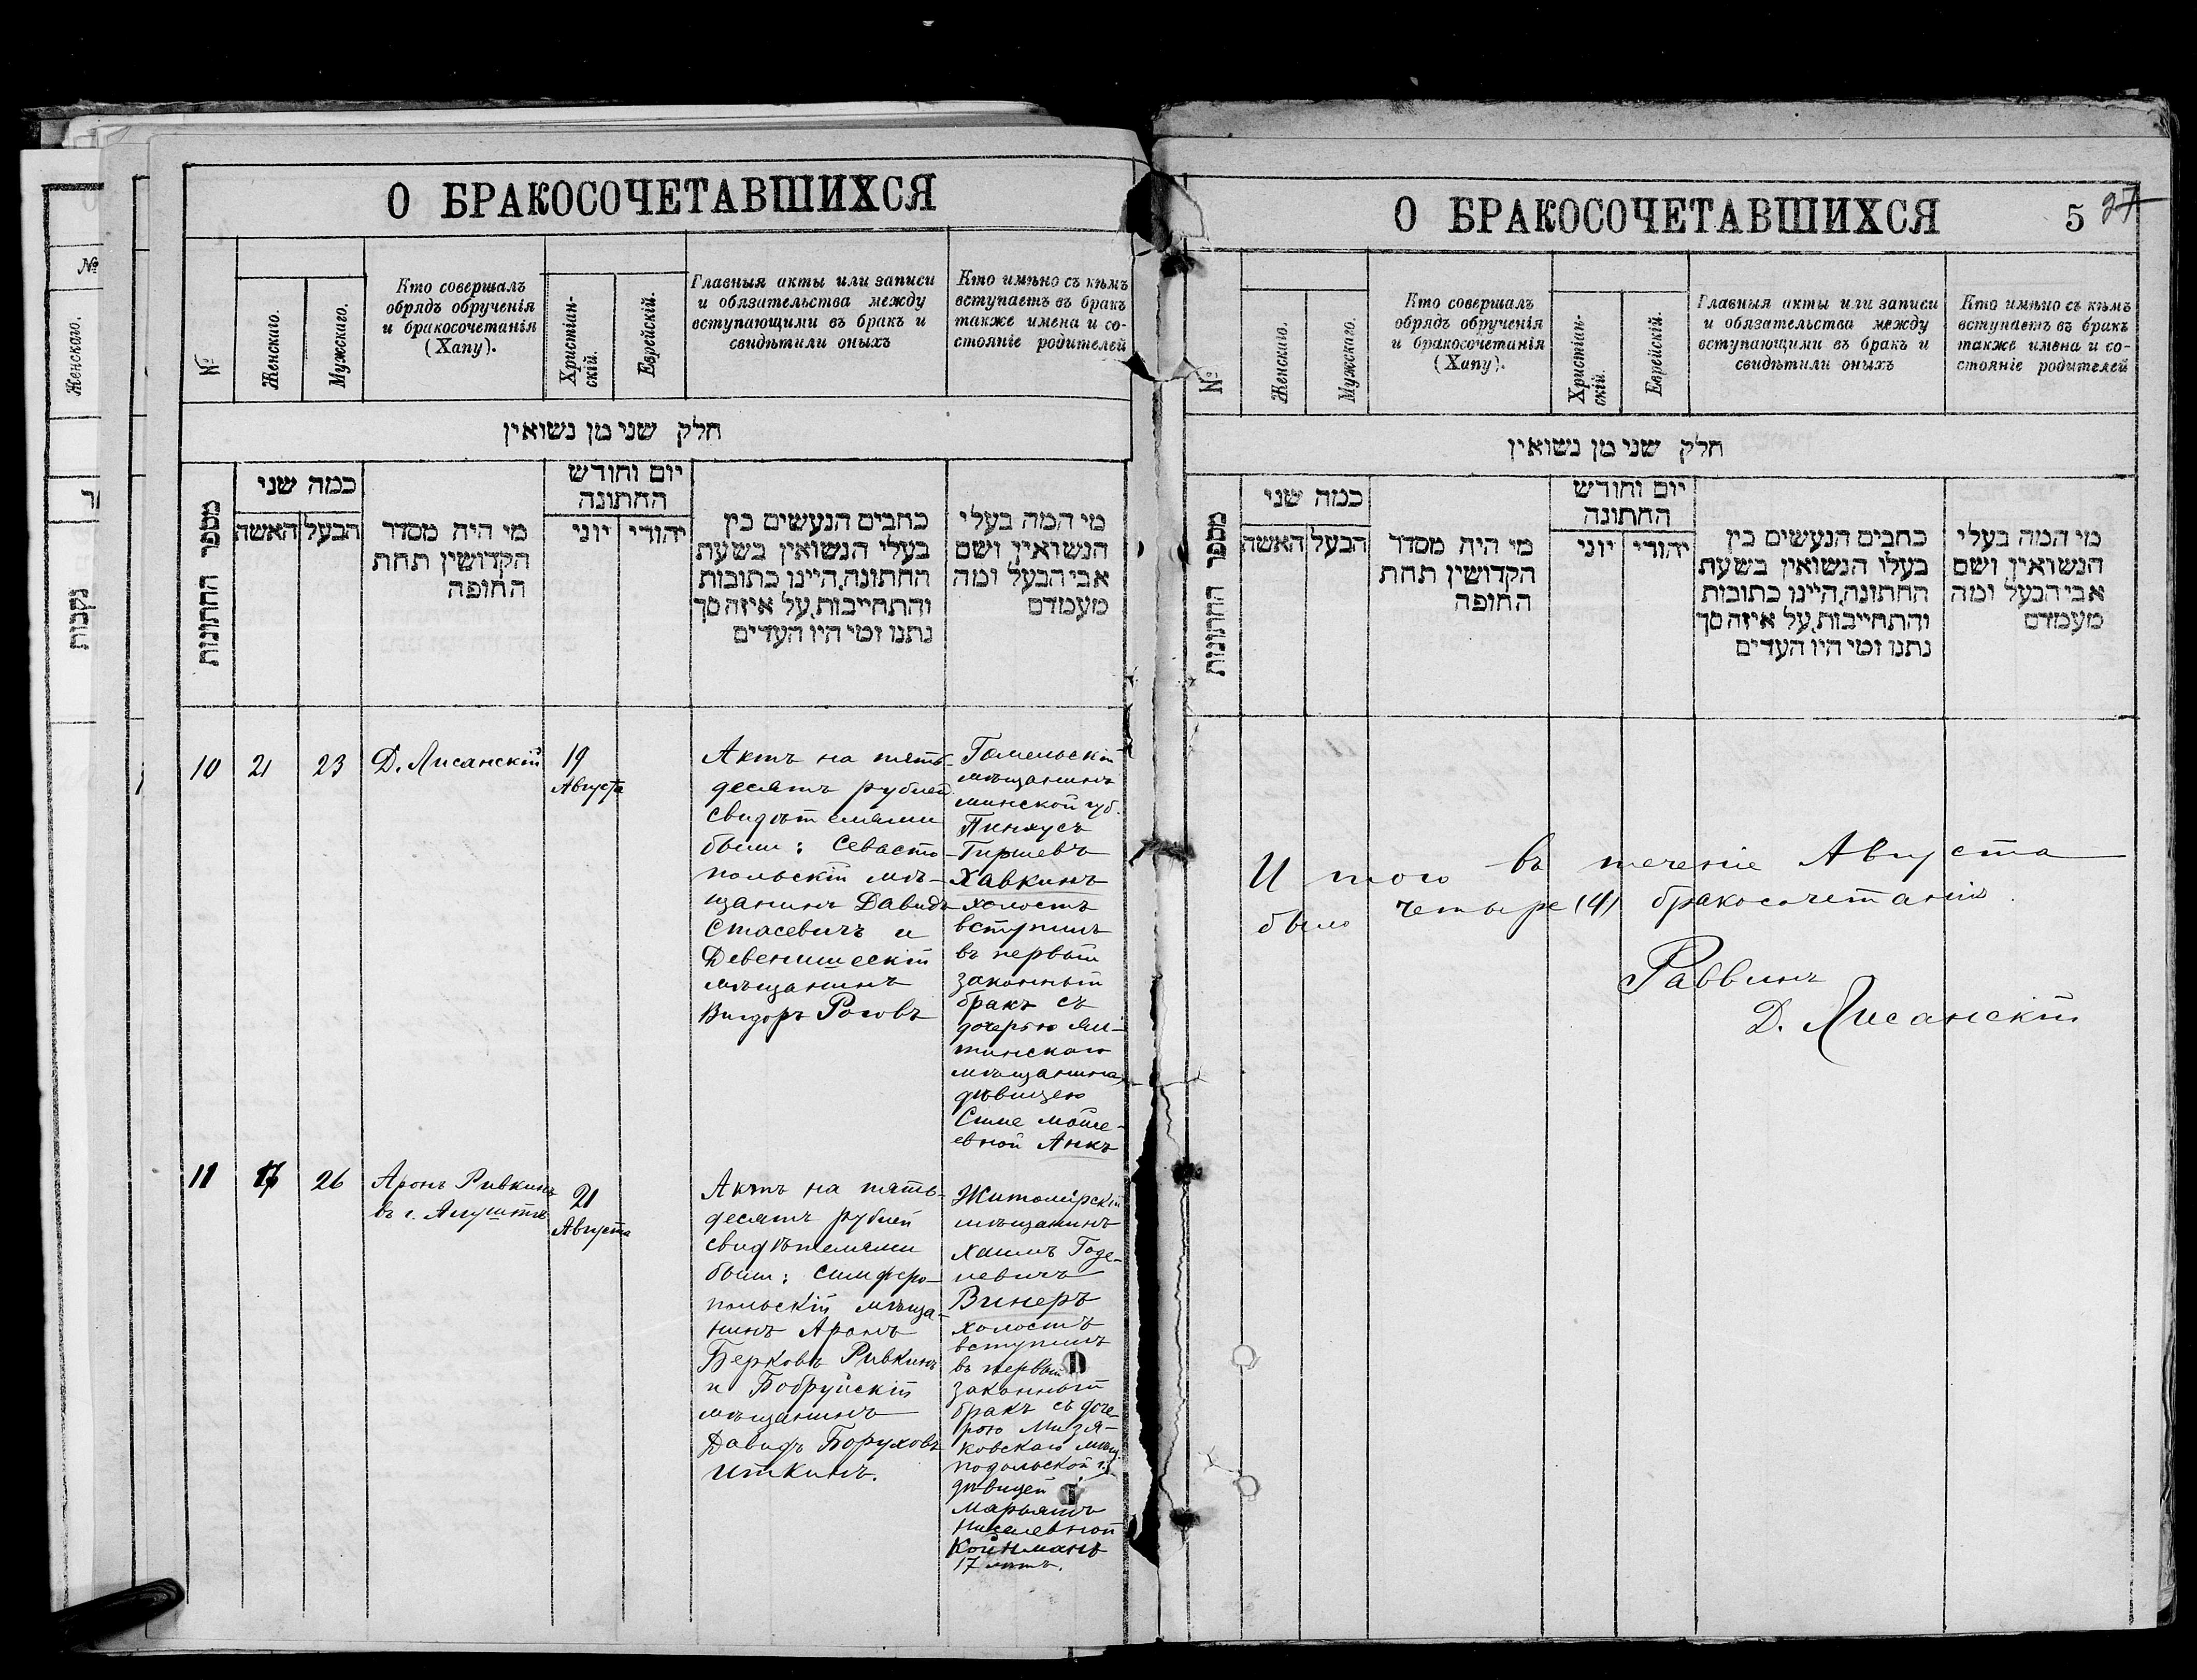 О БРАКОСОЧЕТАВШИХСЯ
№
Женскаго.
Мужскаго.
Кто совершалъ
обрядъ обрученія
и бракосочетанія
(Хапу).
Христіан-
скій.
Еврейскій.
Главныя акты или записи
и обязательства между
вступающими въ бракъ и
свидѣтили оныхъ
Кто имѣно съ кѣмъ
вступаетъ въ бракъ
также имена и со-
стояніе родителей
חלק שני מן נשואין
מספר החתונות
כמה שני
האשה
הבעל
מי היה מסדר
הקדושין תחת
החופה
יום וחודש
החתונה
יוני
יהודי
כתבים הנעשים בין
בעלי הנשואין בשעת
החתונה, היינו כתובות
והתחייבות, על איזה סך
נתנו ומי היו העדים
מי המה בעלי
הנשואין ושם
אבי הבעל ומה
מעמדם
10
21
23
Д. Лисанскій
19
Августа
Актъ на пять-
десятъ рублей
свидѣтелями
были: Севасто-
польскій мѣ-
щанинъ Давидъ
Стасевичъ и
Девенишескій
мѣщанинъ
Вигдоръ Роговъ
Гомельскій
мѣщанинъ
минской губ.
Пинхусъ
Гиршевъ
Хавкинъ
холостъ
вступилъ
въ первый
законный
бракъ съ
дочерью Ял-
тинскаго
мѣщанина
дѣвицею
Симе Мойше-
евной Анкъ
11
17
26
Аронъ Ривкинъ
въ г. Алуштѣ
21
Августа
Актъ на пять-
десятъ рублей
свидѣтелями
были: симферо-
польскій мѣща-
нинъ Аронъ
Берковъ Ривкинъ
и Бобруйскій
мѣщанинъ
Давидъ Боруховъ
Иткинъ.
Житомірскій
мѣщанинъ
Хаимъ Годе-
левичъ
Винеръ
холостъ
вступилъ
въ первый
законный
бракъ съ доче-
рью Мизя-
ковскаго мѣщ.
подольской г.
дѣвицей
Марьямъ
Койнманъ
17 лѣтъ.
О БРАКОСОЧЕТАВШИХСЯ
5
27
№
Женскаго.
Мужскаго.
Кто совершалъ
обрядъ обрученія
и бракосочетанія
(Хапу).
Христіан-
скій.
Еврейскій.
Главныя акты или записи
и обязательства между
вступающими въ бракъ и
свидѣтили оныхъ
Кто имѣно съ кѣмъ
вступаетъ въ бракъ
также имена и со-
стояніе родителей
חלק שני מן נשואין
מספר החתונות
כמה שני
האשה
הבעל
מי היה מסדר
הקדושין תחת
החופה
יום וחודש
החתונה
יוני
יהודי
כתבים הנעשים בין
בעלו הנשואין בשעת
החתונה, היינו כתובות
והתחייבות, על איזה סך
נתנו ומי היו העדים
מי המה בעלי
הנשואין ושם
אבי הבעל ומה
מעמדם
И того въ теченіе Августа
было четыре (4) бракосочетанія.
Раввинъ
Д. Лисанскій